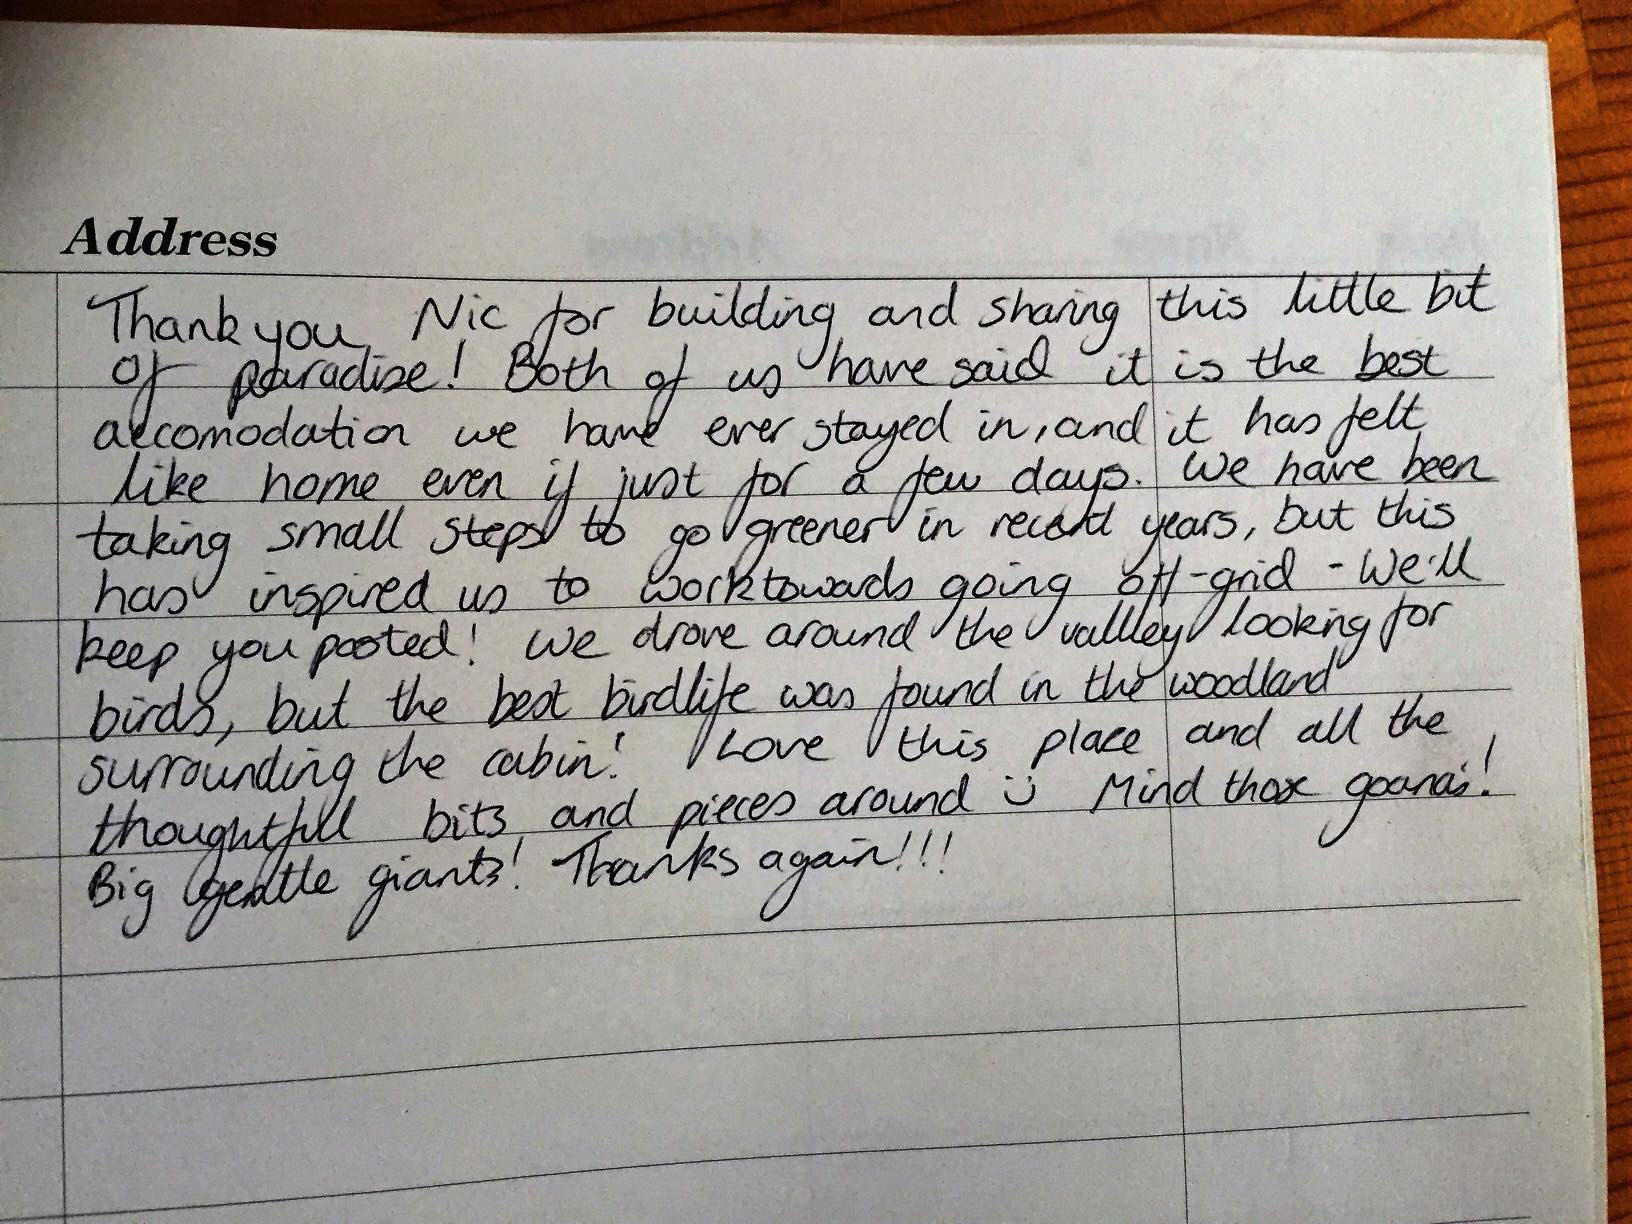 Address
Thank you Nic for building and sharing this little bit
of paradise! Both of us have said it is the best
accomodation we have ever stayed in, and it has felt
like home even if just for a few days. We have been
taking small steps to go greener in recent years, but this
has inspired us to work towards going off-grid - We'll
keep you posted! We drove around the vallley looking for
birds, but the best birdlife was found in the woodland
surrounding the cabin! Love this place and all the
thoughtful bits and pieces around :) Mind those goanas!
Big gentle giants! Thanks again!!!